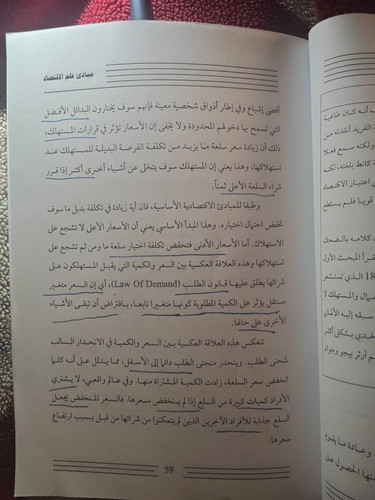 مبادئ علم الاقتصاد
أقصى إشباع وفي إطار أذواق شخصية معينة فإنهم سوف يختارون البدائل الأفضل
التي تسمح بها دخولهم المحدودة ولا يخفى إن الأسعار تؤثر في قرارات المستهلك،
ذلك أن زيادة سعر سلعة ما يزيد من تكلفة الفرصة البديلة للمستهلك عند
استهلاكها، وهذا يعني إن المستهلك سوف يتخلى عن أشياء أخرى أكثر إذا قرر
شراء السلعة الأعلى ثمناً.
وطبقا للمبادئ الاقتصادية الأساسية، فان أية زيادة في تكلفة بديل ما سوف
تخفض احتمال اختياره. وهذا المبدأ الأساسي يعني أن الأسعار الأعلى لا تشجع على
الاستهلاك. أما الأسعار الأدنى فتخفض تكلفة اختيار سلعة ما ومن ثم تشجع على
استهلاكها وهذه العلاقة العكسية بين السعر والكمية التي يقبل المستهلكون على
شرائها يطلق عليها قانون الطلب (Law Of Demand)، أي إن السعر متغير
مستقل يؤثر على الكمية المطلوبة كونها متغيرا تابعا، بافتراض أن تبقى الأشياء
الأخرى على حالها.
تنعكس هذه العلاقة العكسية بين السعر والكمية في الانحدار السالب
لمنحنى الطلب. وينحدر منحنى الطلب دائما إلى الأسفل، مما يدلل على أنه كلما
انخفض سعر السلعة، زادت الكمية المشتراة منها. وفي عالم واقعي، لا يشتري
الأفراد كميات كبيرة من السلع إذا لم ينخفض سعرها. فالسعر المنخفض يجعل
السلع جذابة للأفراد الآخرين الذين لم يتمكنوا من شرائها من قبل بسبب ارتفاع
سعرها.
59